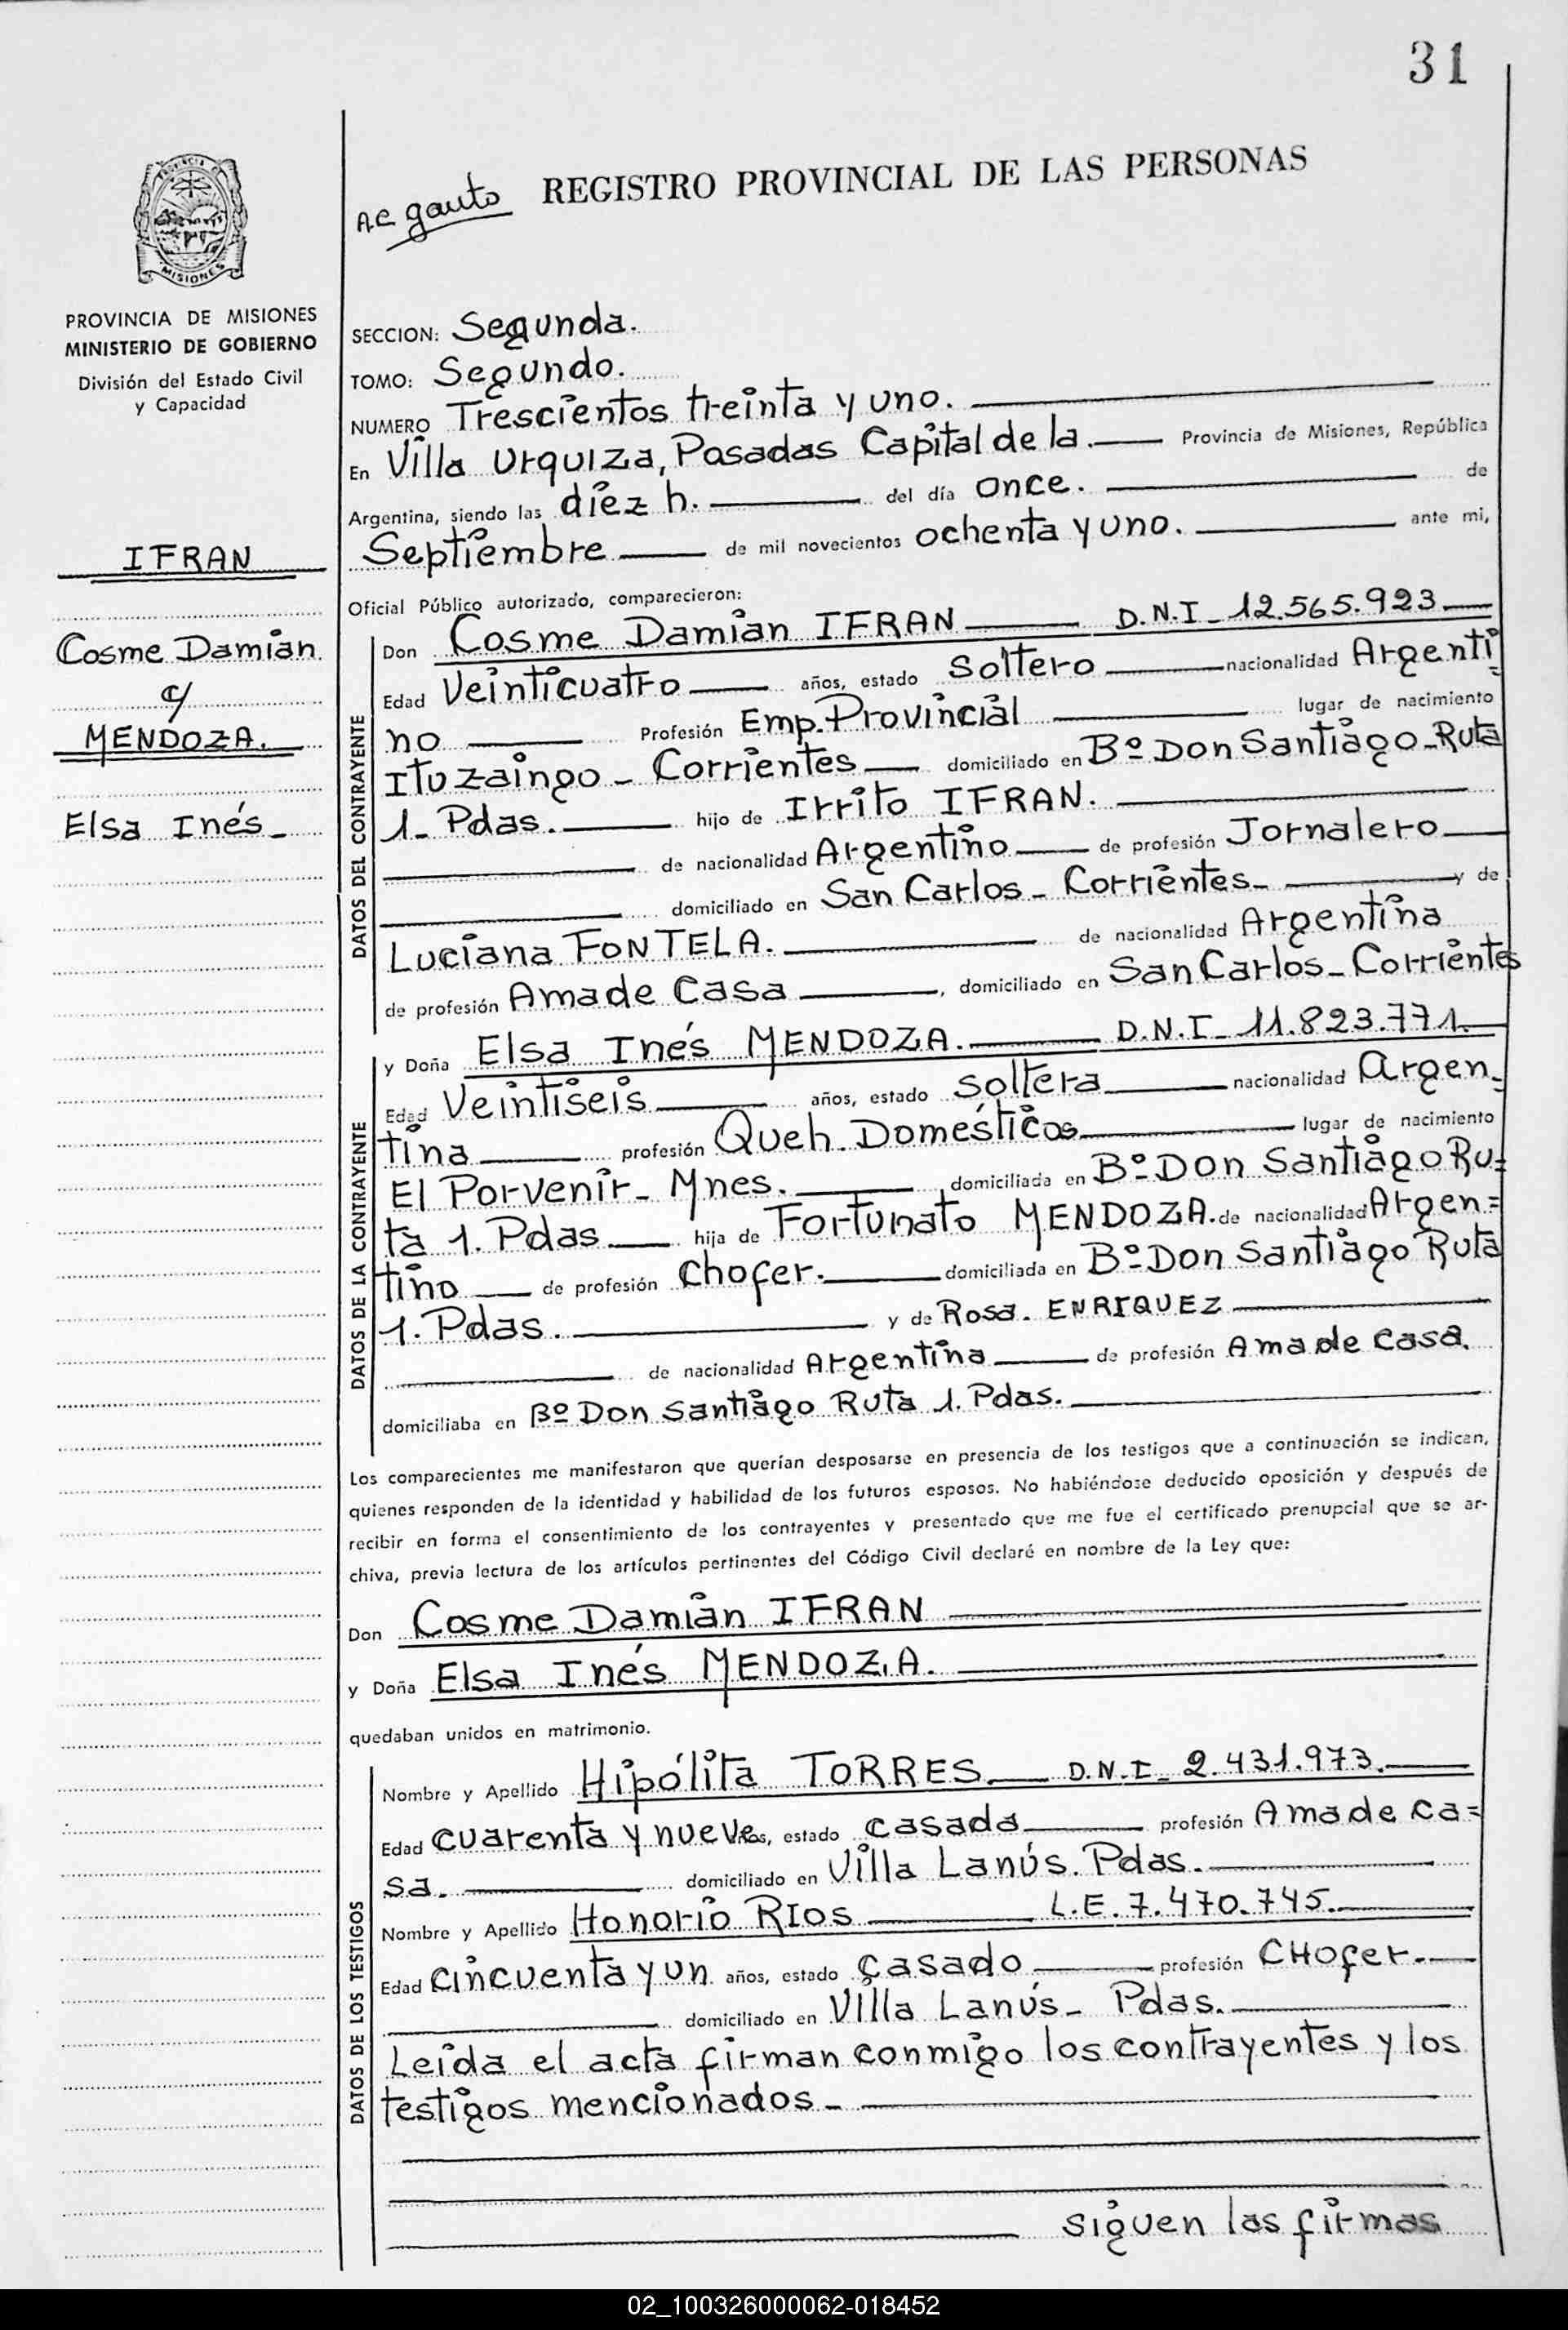 31
REGISTRO PROVINCIAL DE LAS PERSONAS
Ac gauto
PROVINCIA DE MISIONES
MINISTERIO DE GOBIERNO
División del Estado Civil
y Capacidad
IFRAN
Cosme Damián
c/
MENDOZA.
Elsa Inés-
SECCION: Segunda.
TOMO: Segundo.
NUMERO Trescientos treinta y uno.
En Villa Urquiza, Posadas Capital de la. Provincia de Misiones, República
Argentina, siendo las diez h. del día once. de
Septiembre de mil novecientos ochenta y uno. ante mi,
Oficial Público autorizado, comparecieron:
DATOS DEL CONTRAYENTE
Don Cosme Damián IFRAN D.N.I- 12.565.923
Edad Veinticuatro años, estado Soltero nacionalidad Argenti=
no Profesión Emp. Provincial lugar de nacimiento
Ituzaingo - Corrientes domiciliado en Bº Don Santiago-Ruta
1- Pdas. hijo de Irrito IFRAN.
de nacionalidad Argentino de profesión Jornalero
domiciliado en San Carlos - Corrientes- y de
Luciana FONTELA. de nacionalidad Argentina
de profesión Ama de Casa, domiciliado en San Carlos - Corrientes
DATOS DE LA CONTRAYENTE
y Doña Elsa Inés MENDOZA. D.N.I- 11.823.771.
Edad Veintiseis años, estado Soltera nacionalidad Argen=
tina profesión Queh. Domésticos lugar de nacimiento
El Porvenir - Mnes. domiciliada en Bº Don Santiago Ru=
ta 1. Pdas hija de Fortunato MENDOZA. de nacionalidad Argen=
tino de profesión Chofer. domiciliada en Bº Don Santiago Ruta
1. Pdas. y de Rosa. ENRIQUEZ
de nacionalidad Argentina de profesión Ama de Casa.
domiciliaba en Bº Don Santiago Ruta 1. Pdas.
Los comparecientes me manifestaron que querían desposarse en presencia de los testigos que a continuación se indican,
quienes responden de la identidad y habilidad de los futuros esposos. No habiéndose deducido oposición y después de
recibir en forma el consentimiento de los contrayentes y presentado que me fue el certificado prenupcial que se ar-
chiva, previa lectura de los artículos pertinentes del Código Civil declaré en nombre de la Ley que:
Don Cosme Damián IFRAN
y Doña Elsa Inés MENDOZA.
quedaban unidos en matrimonio.
DATOS DE LOS TESTIGOS
Nombre y Apellido Hipólita TORRES. D.N.I- 2.431.973.
Edad Cuarenta y nueve años, estado Casada profesión Ama de Ca=
sa. domiciliado en Villa Lanús. Pdas.
Nombre y Apellido Honorio RIOS L.E. 7.470.745.
Edad Cincuenta y un años, estado Casado profesión CHofer.
domiciliado en Villa Lanús - Pdas.
Leida el acta firman conmigo los contrayentes y los
testigos mencionados -
siguen las firmas
02_100326000062-018452